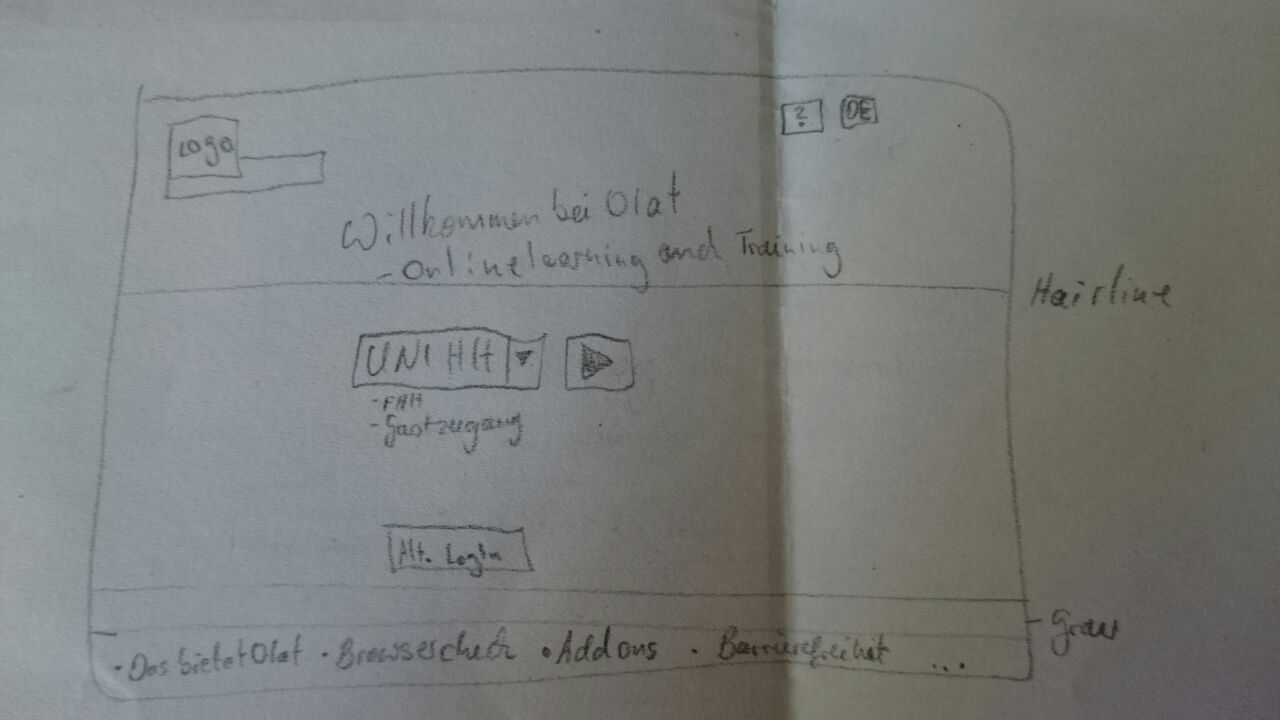 Logo
? DE
Willkommen bei Olat
- Onlinelearning and Training
Hairline
UNI HH
- FHH
- Gastzugang
Alt. Login
Grau
• Das bietet Olat • Browsercheck • Add ons • Barrierefreiheit ...